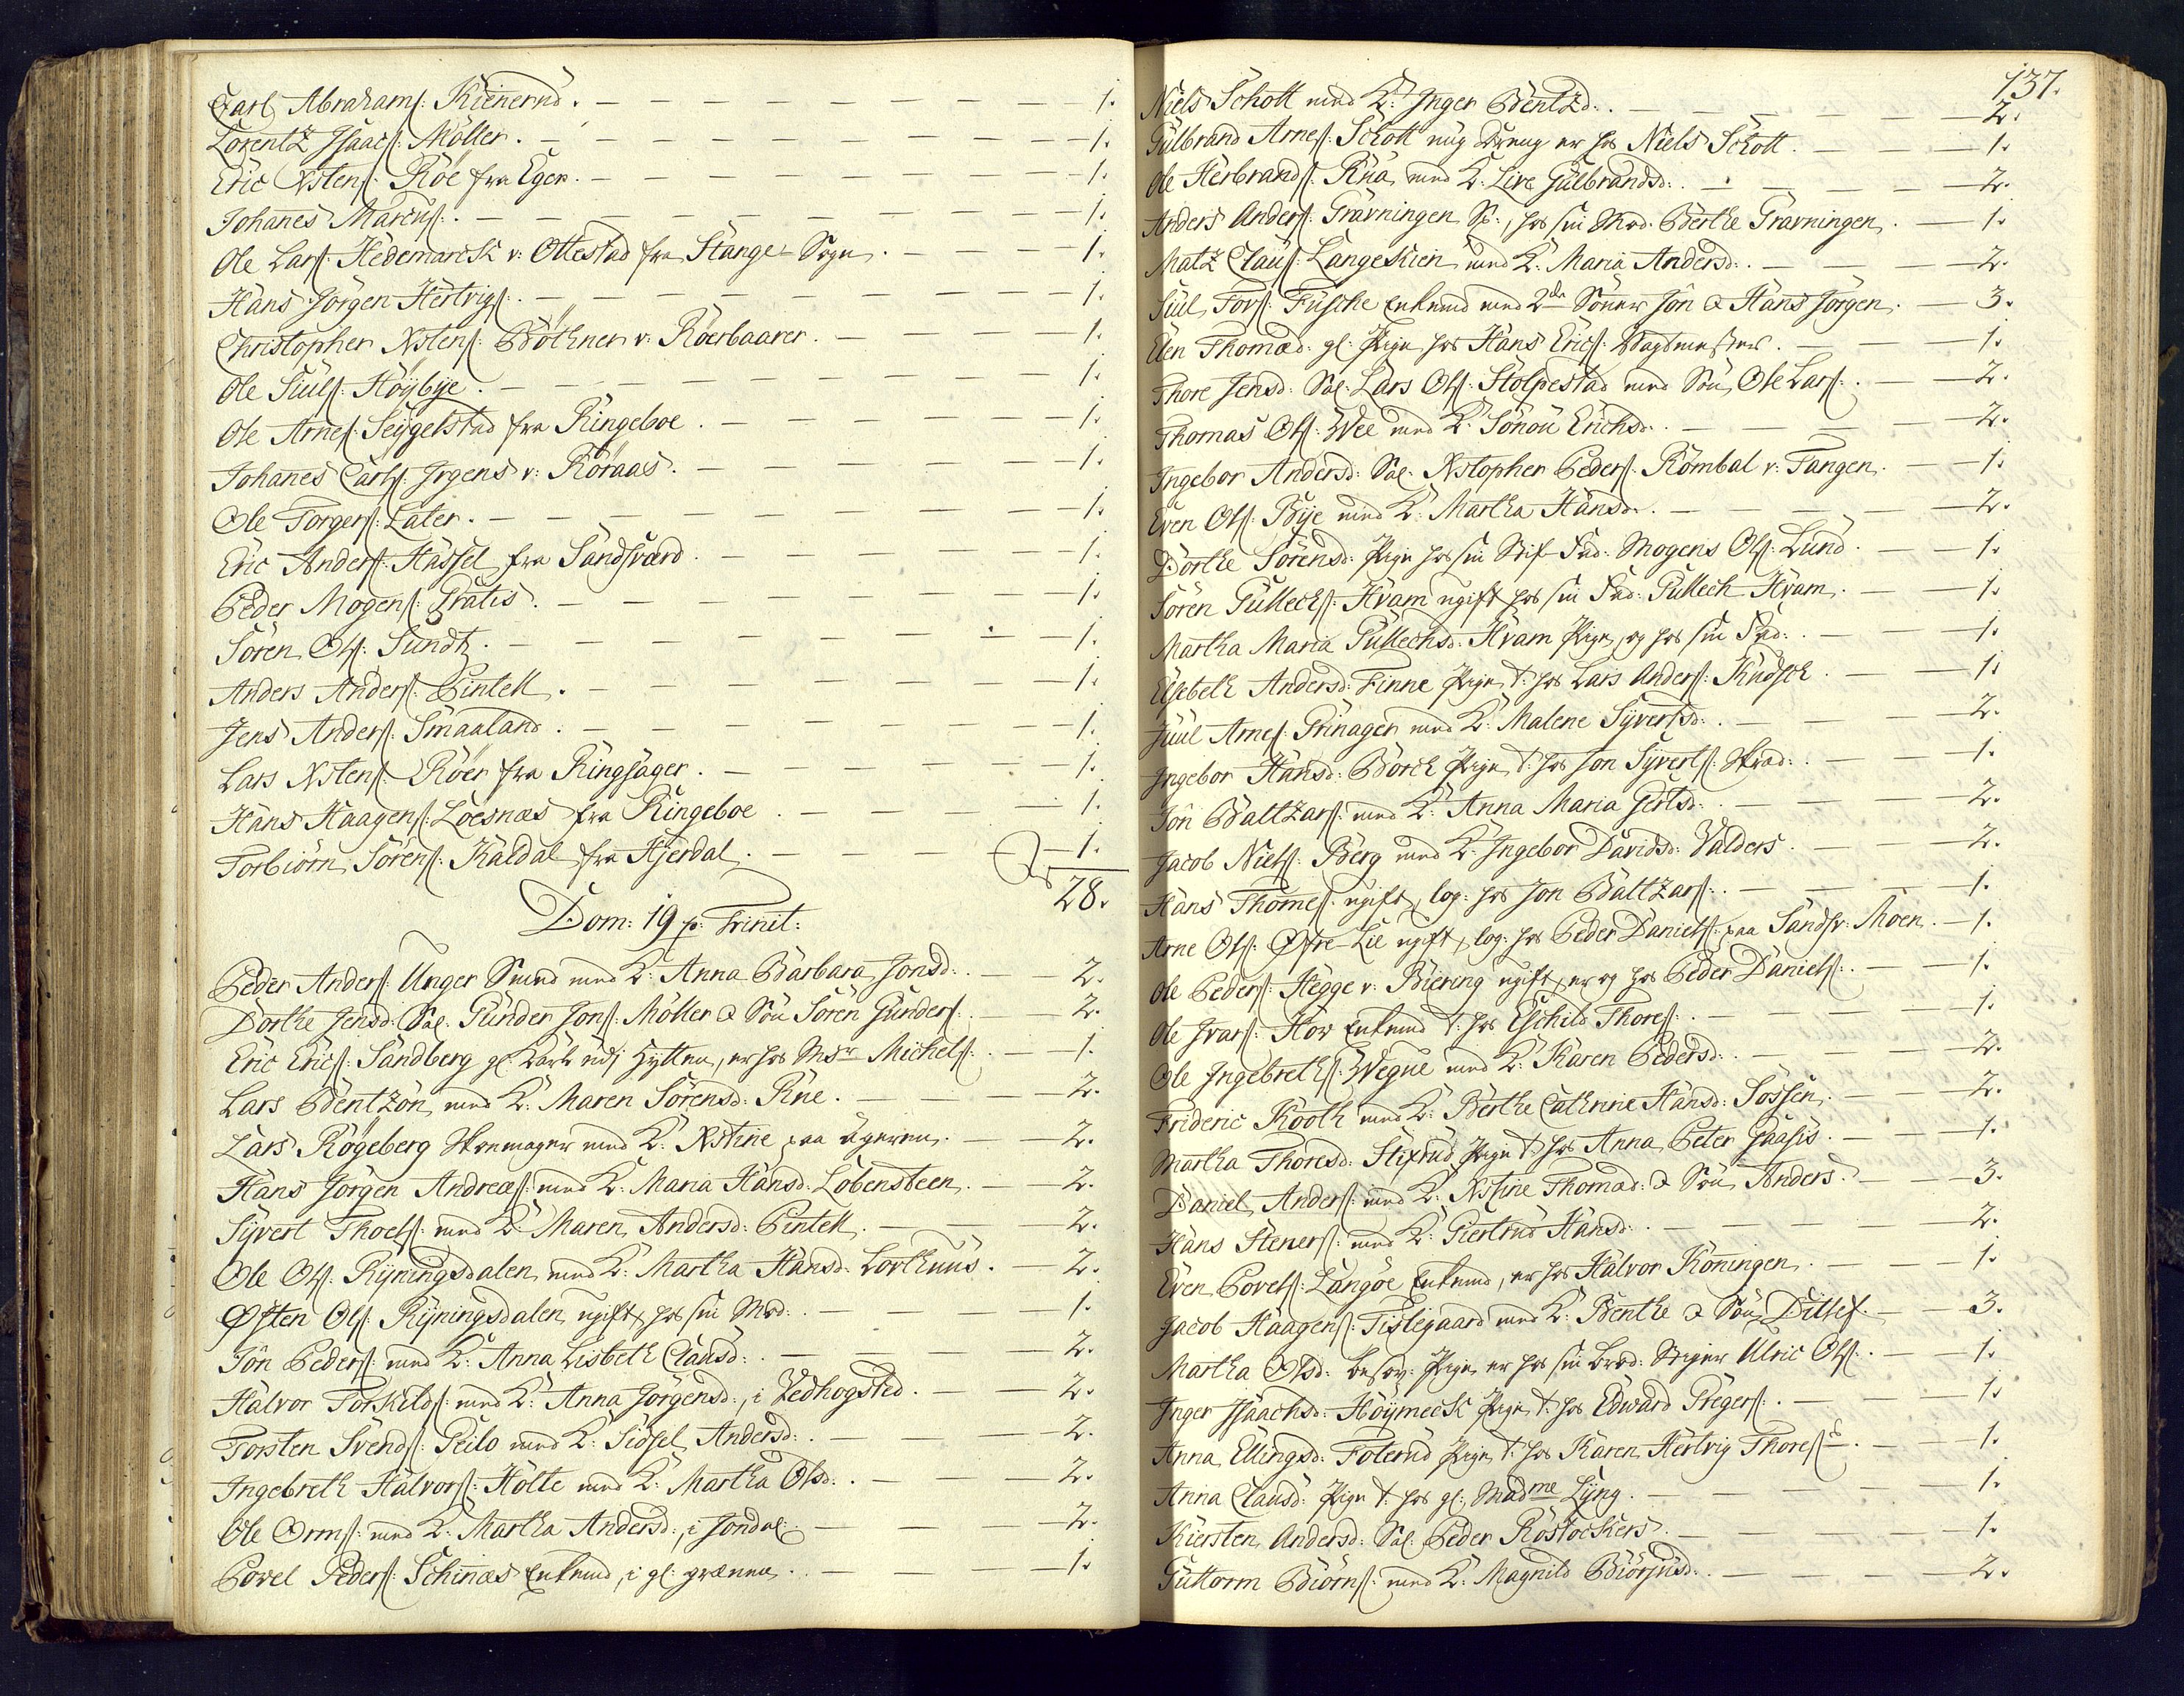 Carl Abrahams: Kiennerud. — 1.
Lorentz Isaacs: Möller. — 1.
Eric Xstens: Röe fra Eger. — 1.
Johanes Marcus: — 1.
Ole Lars: Hedemarck v: Ottestad fra Stange Sogn. — 1.
Hans Jörgen Hertvigs: — 1.
Christopher Xstens: Böthner v: Röerbaarer. — 1.
Ole Juuls: Höybye. — 1.
Ole Arnes: Seygelstad fra Ringeboe. — 1.
Johanes Carls: Jrgens v: Röraas. — 1.
Ole Torgers: Later. — 1.
Eric Anders: Hassel fra Sandsværd. — 1.
Peder Mogens: Gratis. — 1.
Sören Ols: Sundt. — 1.
Anders Anders: Pintell. — 1.
Jens Anders: Smaaland. — 1.
Lars Xstens: Röer fra Ringsager. — 1.
Hans Haagens: Loesnæs fra Ringeboe. — 1.
Torbiörn Sörens: Kaldal fra Hjerdal. — 1.
28.
Dom: 19 p: Trinit:
Peder Anders: Unger Smed med K: Anna Barbara Jonsd: — 2.
Dorthe Jensd: Sal. Gunder Jons: Möller & Sön Sören Gunders: — 2.
Eric Erics: Sandberg gl: Karl udj Hytten, er hos Msr Michels: — 1.
Lars Bentzön med K: Maren Sörensd: Rue. — 2.
Lars Rögeberg Skoemager med K: Xstine paa Ageren. — 2.
Hans Jörgen Andreæs: med K: Maria Hansd: Lobensteen. — 2.
Syvert Thoels: med K: Maren Andersd: Pintell. — 2.
Ole Ols: Ryningsdalen med K: Martha Hansd: Lorthuus. — 2.
Østen Ols: Ryningsdalen ugift, hos sin Mod: — 1.
Jön Peders: med K: Anna Lisbeth Clausd: — 2.
Halvor Torkilds: med K: Anna Jörgensd:, i Vedhogsted. — 2.
Torsten Svends: Geilo med K: Sidsel Andersd: — 2.
Ingebreth Halvors: Holte med K: Martha Olsd: — 2.
Ole Orms: med K: Martha Andersd:, i Jondal. — 2.
Povel Peders: Schinæs Enkemd, i gl: grænne. — 1.
137.
Niels Schott med K: Inger Bentzd: — 2.
Gulbrand Arnes: Schott ung Dreng er hos Niels Schott. — 1.
Ole Herbrands: Rua med K: Live Gulbrandsd: — 2.
Anders Anders: Gravningen, hos sin Mod: Berthe Gravningen. — 1.
Matz Claus: Langeskien med K: Maria Andersd: — 2.
Juul Tors: Fusche Enkemd med 2de Sönner Jon & Hans Jörgen. — 3.
Elen Thomæd: gl: Pige hos Hans Erics: Vagtmester. — 1.
Thore Jensd: Sal: Lars Ols: Stolpestad med Sön Ole Lars: — 2.
Thomas Ols: Wee med K: Sönou Erichsd: — 2.
Ingebor Andersd: Sal: Xstopher Peders: Römbal v: Tangen. — 1.
Even Ols: Bye med K: Martha Hansd: — 2.
Dorthe Sörensd: Pige hos sin Stif-Fad: Mogens Ols: Lund. — 1.
Sören Gullechs: Hvam ugift, hos sin Fad: Gullech Hvam. — 1.
Martha Maria Gullechsd: Hvam Pige, og hos sin Fad: — 1.
Elsebeth Andersd: Finne Pige t: hos Lars Anders: Kudsch. — 1.
Juul Arnes: Grinager med K: Malene Syvertsd: — 2.
Ingebor Hansd: Borch Pige t: hos Jon Syverts: Skræd: — 1.
Jön Baltzars: med K: Anna Maria Gertsd: — 2.
Jacob Niels: Berg med K: Ingebor Davidsd: Valders. — 2.
Hans Thomes: ugift, log: hos Jon Baltzars: — 1.
Arne Ols: Øfre-Lie ugift, log: hos Peder Daniels: paa Sandsv: Moen. — 1.
Ole Peders: Hegge v: Biering ugift, er og hos Peder Daniels: — 1.
Ole Ivars: Hov Enkemd t: hos Eschild Thores: — 1.
Ole Ingebreths: Wegne med K: Karen Pedersd: — 2.
Frideric Kooth med K: Berthe Cathrine Hansd: Sossen. — 2.
Martha Thoresd: Stixrud Pige t: hos Anna Peter Paasis. — 1.
Daniel Anders: med K: Xstine Thomæd: & Sön Anders. — 3.
Hans Steners: med K: Giertrud Hansd: — 2.
Even Povels: Langöe Enkemd, er hos Halvor Könningen. — 1.
Jacob Haagens: Tislegaard med K: Benthe & Sön Ditlef. — 3.
Martha Olsd: besov: Pige er hos sin Brod: Stiger Ulric Ols: — 1.
Inger Isaachsd: Höymeck Pige t: hos Edward Gregers: — 1.
Anna Ellingsd: Foterud Pige t: hos Karen Hertvig Thores: — 1.
Anna Clausd: Pige t: hos gl: Madme Lyng. — 1.
Kiersten Andersd: Sal: Peder Rostockers. — 1.
Guttorm Biörns: med K: Magnild Biörgusd: — 2.